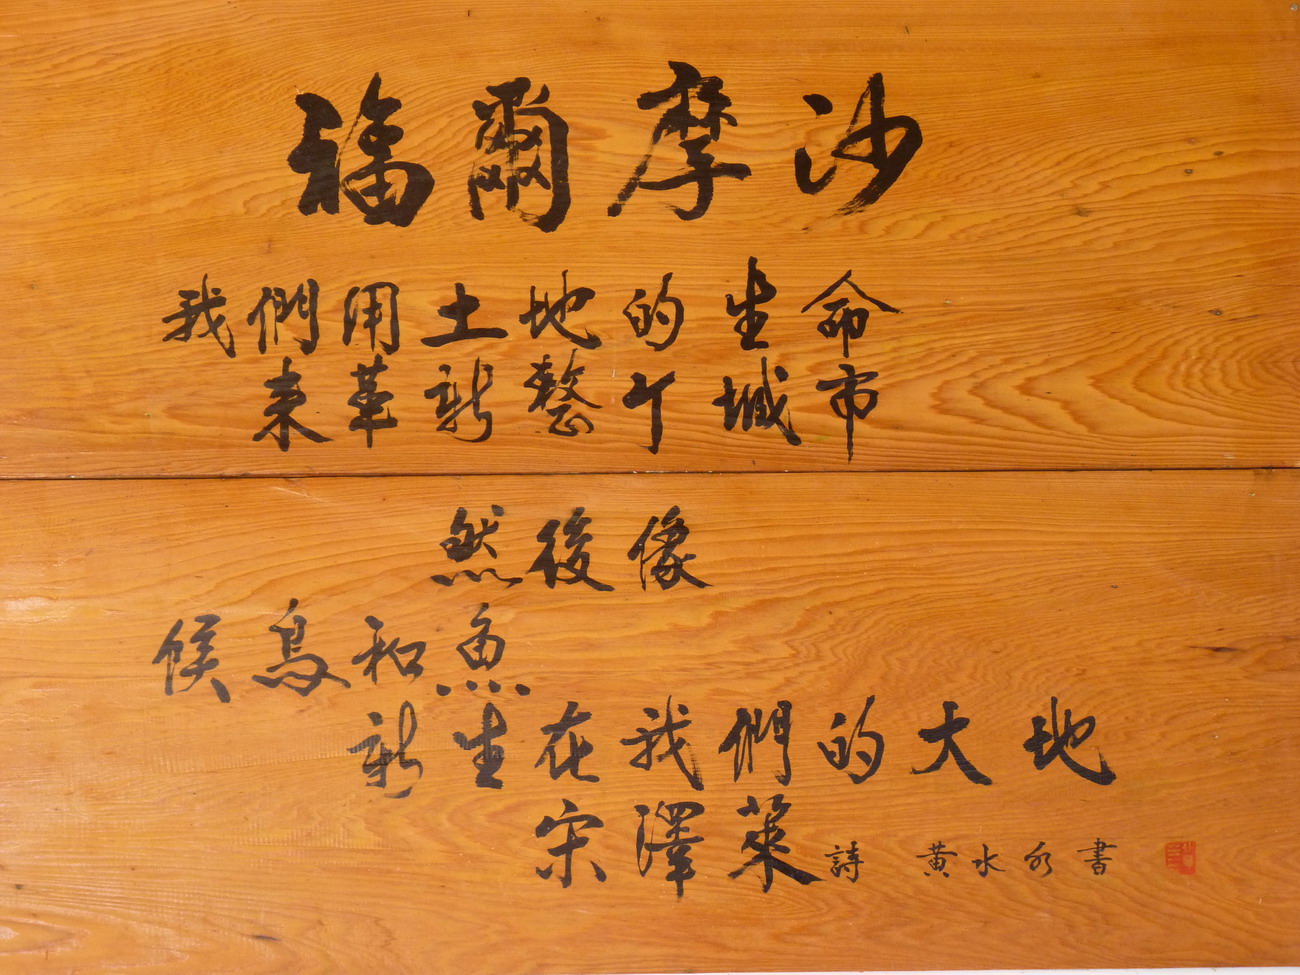 福爾摩沙
我們用土地的生命
来革新整个城市
然後像
候鳥和魚
新生在我們的大地
宋澤萊詩 黃水書